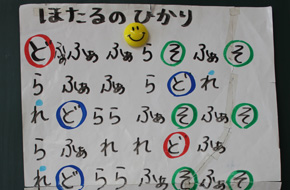 ほたるのひかり
ど ふぁ ふぁ ふぁ ら そ ふぁ そ
ら ふぁ ふぁ ら ど れ
れ ど ら ら ふぁ そ ふぁ そ
ら ふぁ れ れ ど ふぁ
れ ど ら ら ふぁ そ ふぁ そ